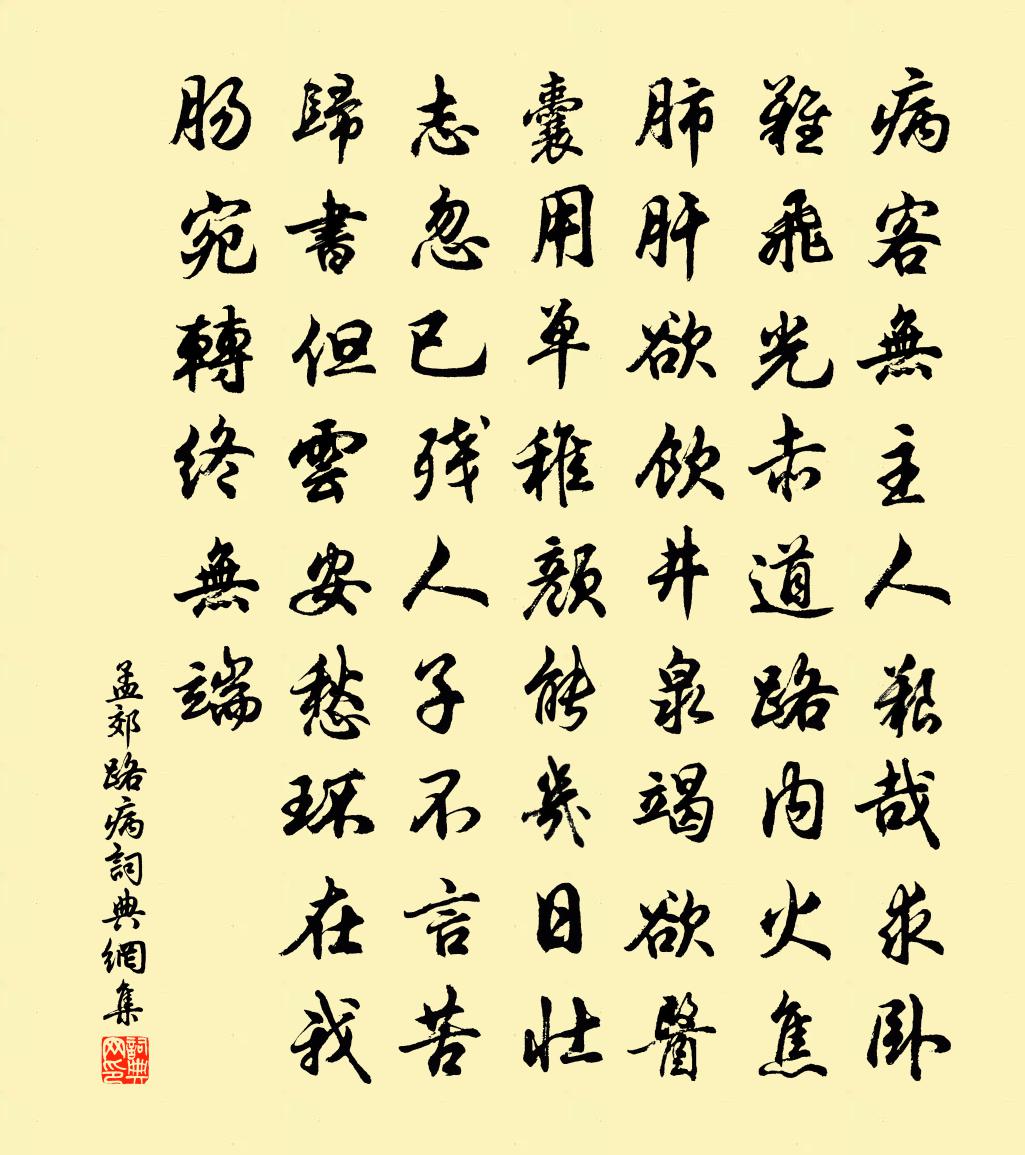 病客無主人艱哉求卧
難飛光赤道路内火焦
肺肝欲飲井泉竭欲醫
囊用单稚顏能幾日壯
志忽已残人子不言苦
歸書但雲安愁环在我
肠宛轉終無端
孟郊路病詞典網集
詞典网印